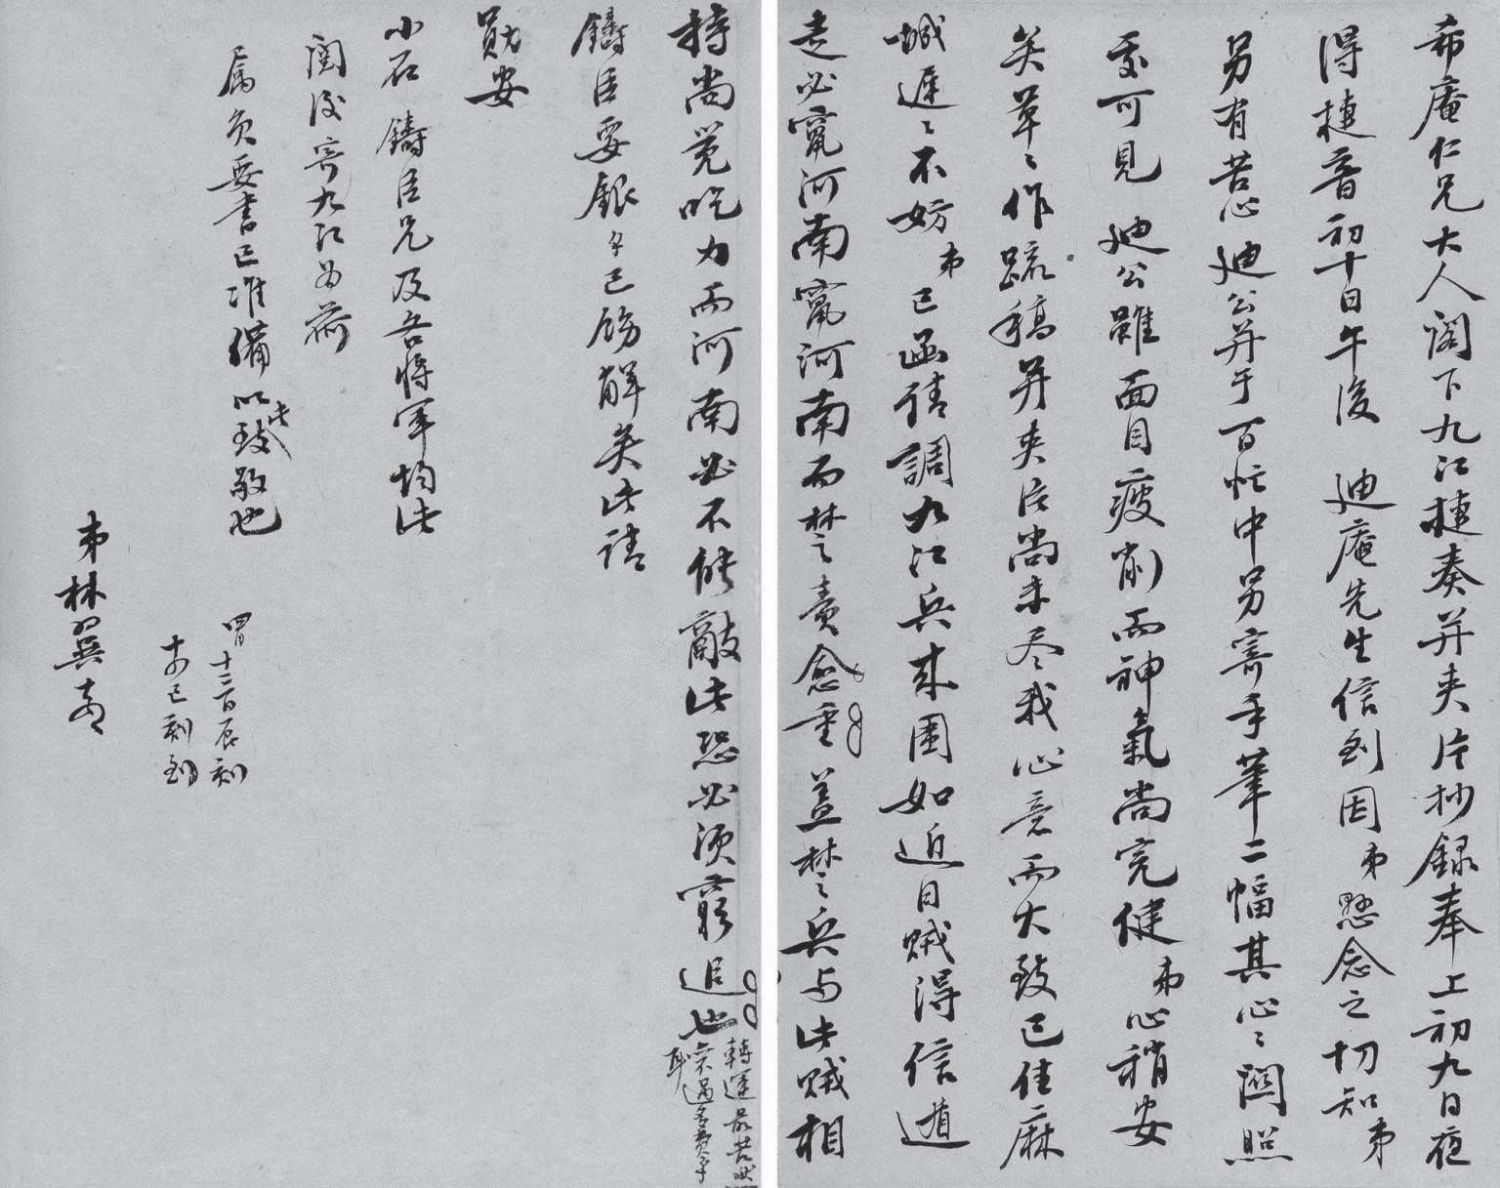 希庵仁兄大人閣下九江捷奏并夾片抄録奉上初九日夜
得捷音初十日午後 迪庵先生信到因弟懸念之切知弟
另有苦心迪公并于百忙中另寄手筆二幅其心心關照
可見 迪公雖面目瘦削而神氣尚完健弟心稍安
矣草草作疏稿并夾片尚未尽我心意而大致已佳麻
城遲遲不妨弟已函請調九江兵来圍如近日賊得信遁
走必竄河南竄河南而楚之責愈重蓋楚兵与此賊相
持尚覚吃力而河南必不能敵此恐必須窮追也
轉運最苦然
矣過多費手
耳
鑄臣要銀今已飭解矣此請
勛安
小石 鑄臣兄及各將軍均此
閲後寄九江為荷
厲負要書已準備以此致敬也
弟林翼頓首
十三日辰刻
十四巳刻到